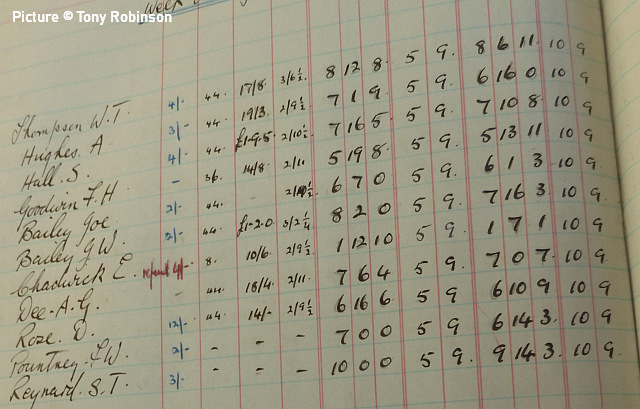 Picture © Tony Robinson
Week
Thompson W.T. 4/- 44. 17/8. 3/6½ 8 12 8. 5 9. 8 6 11. 10 9
Hughes. A. 3/- 44. 19/3. 2/9½ 7 1 9. 5 9. 6 16 0 10 9.
Hall. S. 4/- 44. £1-9-5. 2/10½ 7 16 5. 5 9. 7 10 8. 10 9
Goodwin F.H. - 36. 14/8. 2/11 5 19 8. 5 9. 5 13 11 10 9
Bailey Joe. 2/- 44. 6 7 0 5 9. 6 1 3. 10 9.
Bailey G.W. 2/- 44. £1-2-0. 3/2¼ 8 2 0. 5 9. 7 16 3. 10 9.
Chadwick E. refund 4/- 8. 10/6. 2/9½ 1 12 10 5 9. 1 7 1 10 9.
Dee-A.G. - 44. 18/4. 2/11. 7 6 4. 5 9. 7 0 7. 10 9.
Roze. D. 12/- 44. 14/- 2/9½ 6 16 6. 5 9 6 10 9 10 9.
Pountney. F.W. 2/- - - - 7 0 0 5 9 6 14 3. 10 9
Reynard. S.T. 3/- - - - 10 0 0 5 9. 9 14 3. 10 9.